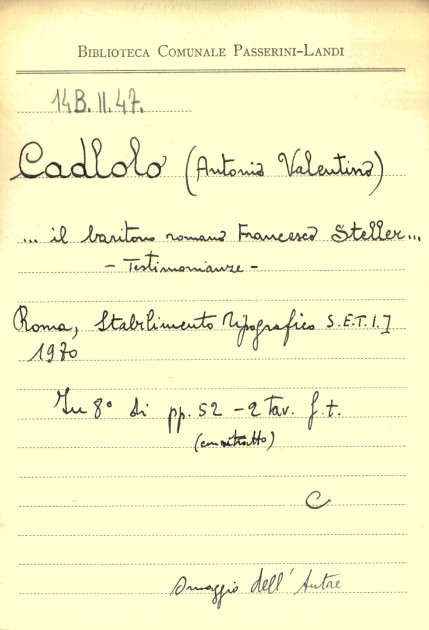 BIBLIOTECA COMUNALE PASSERINI-LANDI
14B.II.47.
Cadlolo (Antonio Valentino)
... il baritono romano Francesco Steller...
- Testimonianze -
Roma, Stabilimento Tipografico S.E.T.I.]
1970
In 8° di pp. 52 - 2 Tav. f.t.
(con ritratto)
C
Omaggio dell'Autore